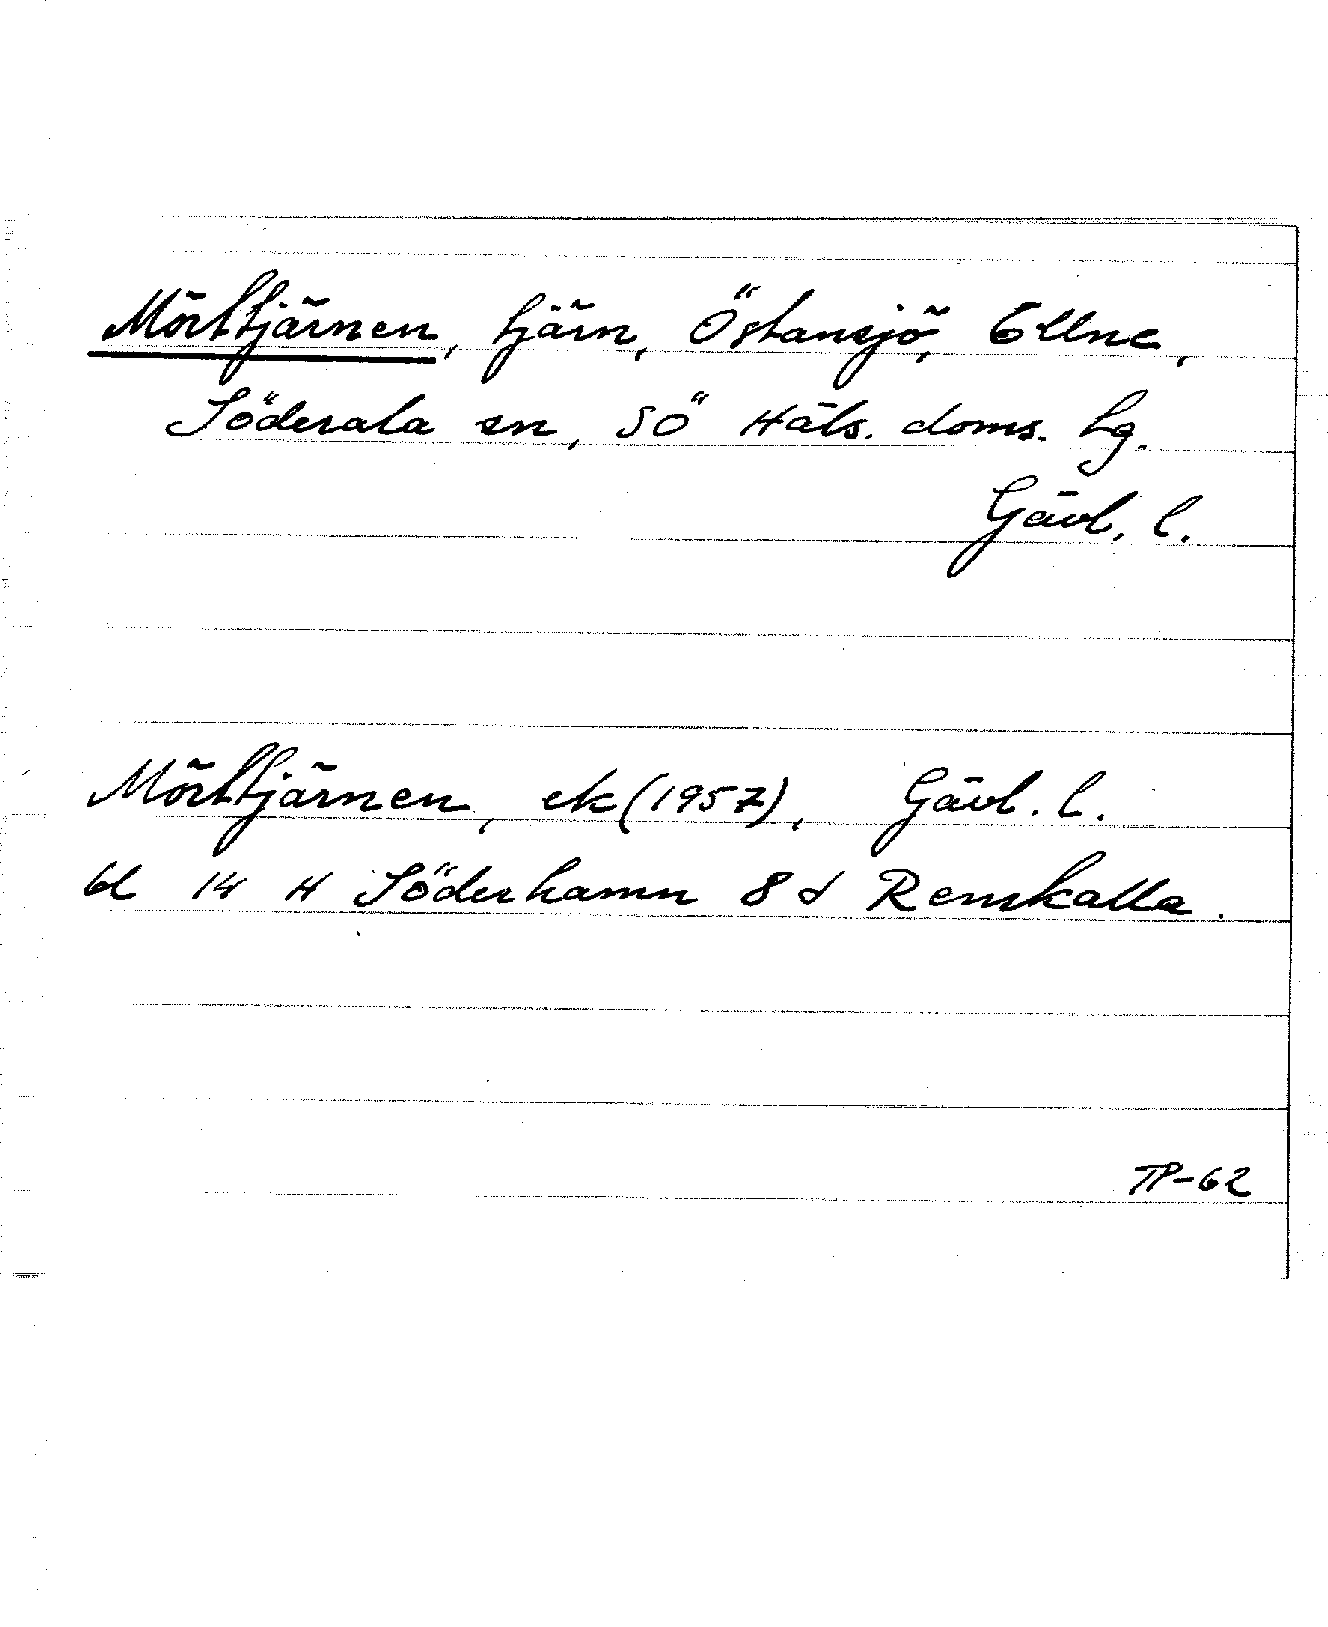 Mörttjärnen, tjärn, Östansjö, Ellne,
Söderala sn, SÖ Häls. doms. hg.
Gävl. l.
Mörttjärnen, ek (1957), Gävl. l.
bl 14 H Söderhamn 8 d Renskalla.
TP-62